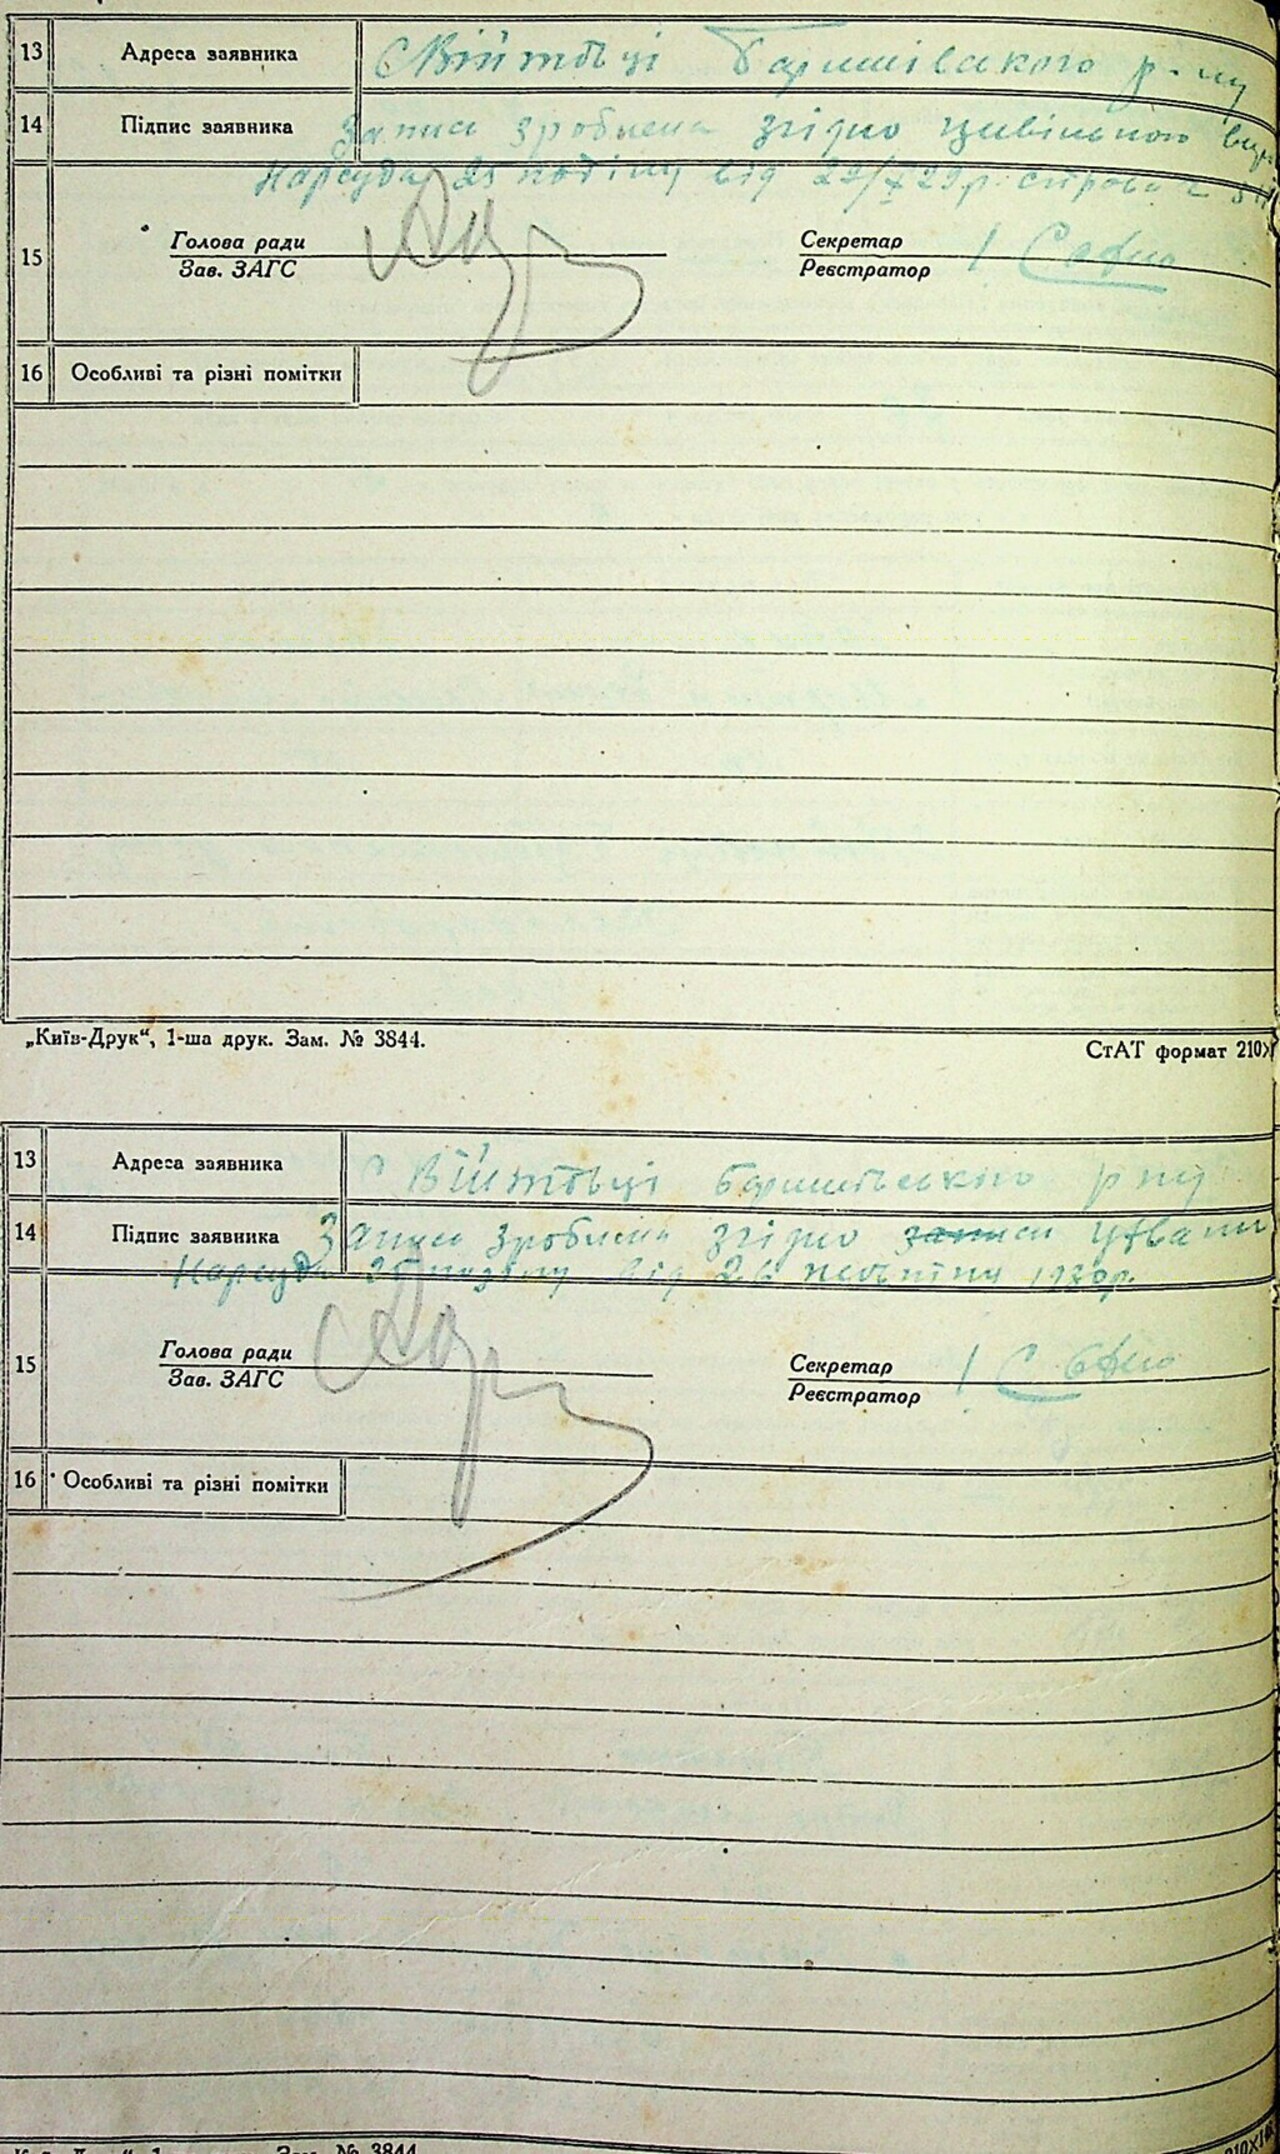 13 Адреса заявника С Війтовці Баришівського р-ну
14 Підпис заявника Запис зроблено згідно цивільного
Нарсуда 25 від 22/X 29р. справа
15 Голова ради Секретар
Зав. ЗАГС Реєстратор
16 Особливі та різні помітки
„Київ-Друк“, 1-ша друк. Зам. № 3844. СтАТ формат 210×
13 Адреса заявника С Війтовці Баришівського р ну
14 Підпис заявника Запис зроблено згідно
Нарсуда 25 від 1930р.
15 Голова ради Секретар
Зав. ЗАГС Реєстратор
16 Особливі та різні помітки
Зам. № 3844